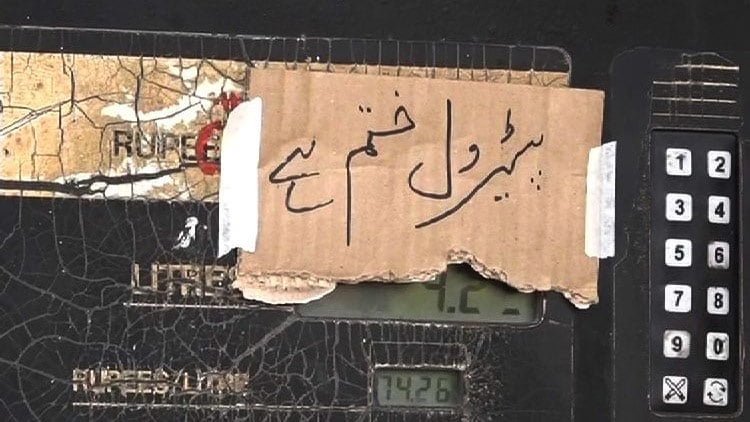 RUPEE
پیٹرول ختم ہے
LITRES
4.2
RUPEES/LITRE
74.26
1 2
3 4
5 6
7 8
9 0